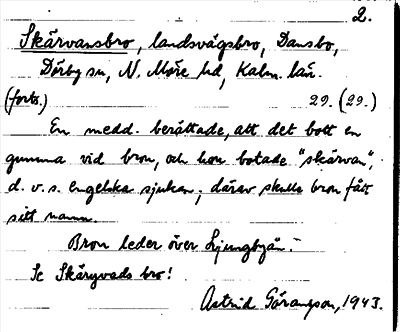 2.
Skärvansbro, landsvägsbro, Dansbo,
Dörby sn, N. Möre hd, Kalm. län.
(forts.) 29. (29.)
En medd. berättade, att det bott en
gumma vid bron, och hon botade "skärvan",
d. v. s. engelska sjukan; därav skulle bron fått
sitt namn.
Bron leder över Ljungbyån.
Se Skärgvads bro!
Astrid Göransson, 1943.